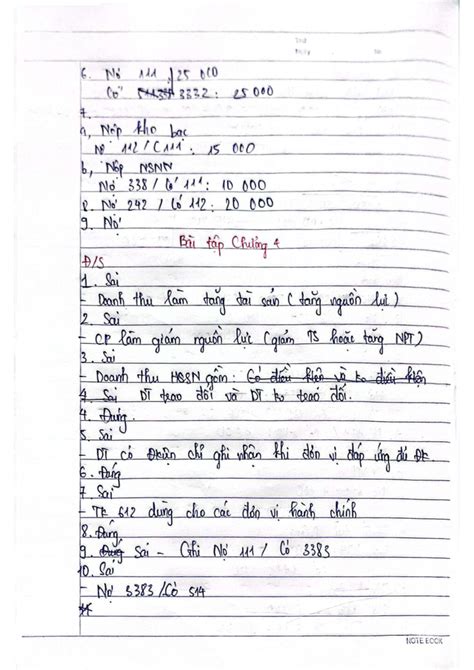 6. Nợ 111 : 25 000
Có 3332 : 25 000
7.
a, Nộp kho bạc
Nợ 112 / C 111 : 15 000
b, Nộp NSNN
Nợ 338 / Có 111 : 10 000
8. Nợ 242 / Có 112 : 20 000
9. Nợ
Bài tập Chương 4
Đ/S
1. Sai
- Doanh thu làm tăng tài sản (tăng nguồn lực)
2. Sai
- CP làm giảm nguồn lực (giảm TS hoặc tăng NPT)
3. Sai
- Doanh thu HCSN gồm: Có điều kiện và ko điều kiện
4. Sai DT trao đổi và DT ko trao đổi.
4. Đúng.
5. Sai
- DT có chỉ ghi nhận khi đơn vị đáp ứng đủ ĐK.
6. Đúng
7. Sai
- TK 612 dùng cho các đơn vị hành chính
8. Đúng
9. Đúng Sai - Ghi Nợ 111 / Có 3383
10. Sai
- Nợ 3383 / Có 514
NOTEBOOK